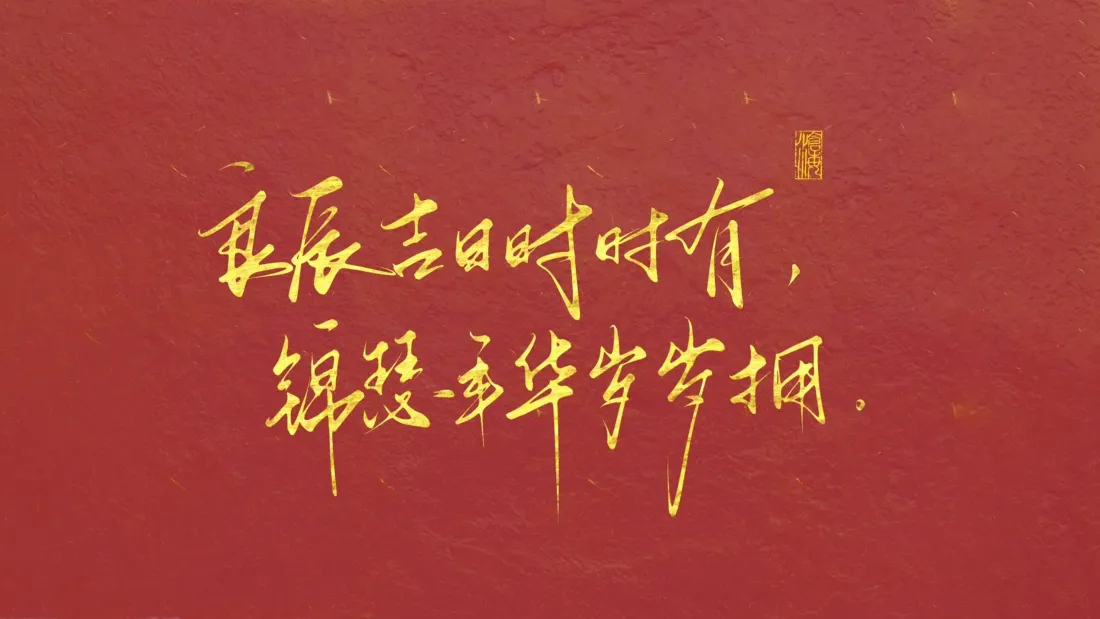 良辰吉日时时有，
锦瑟年华岁岁拥。